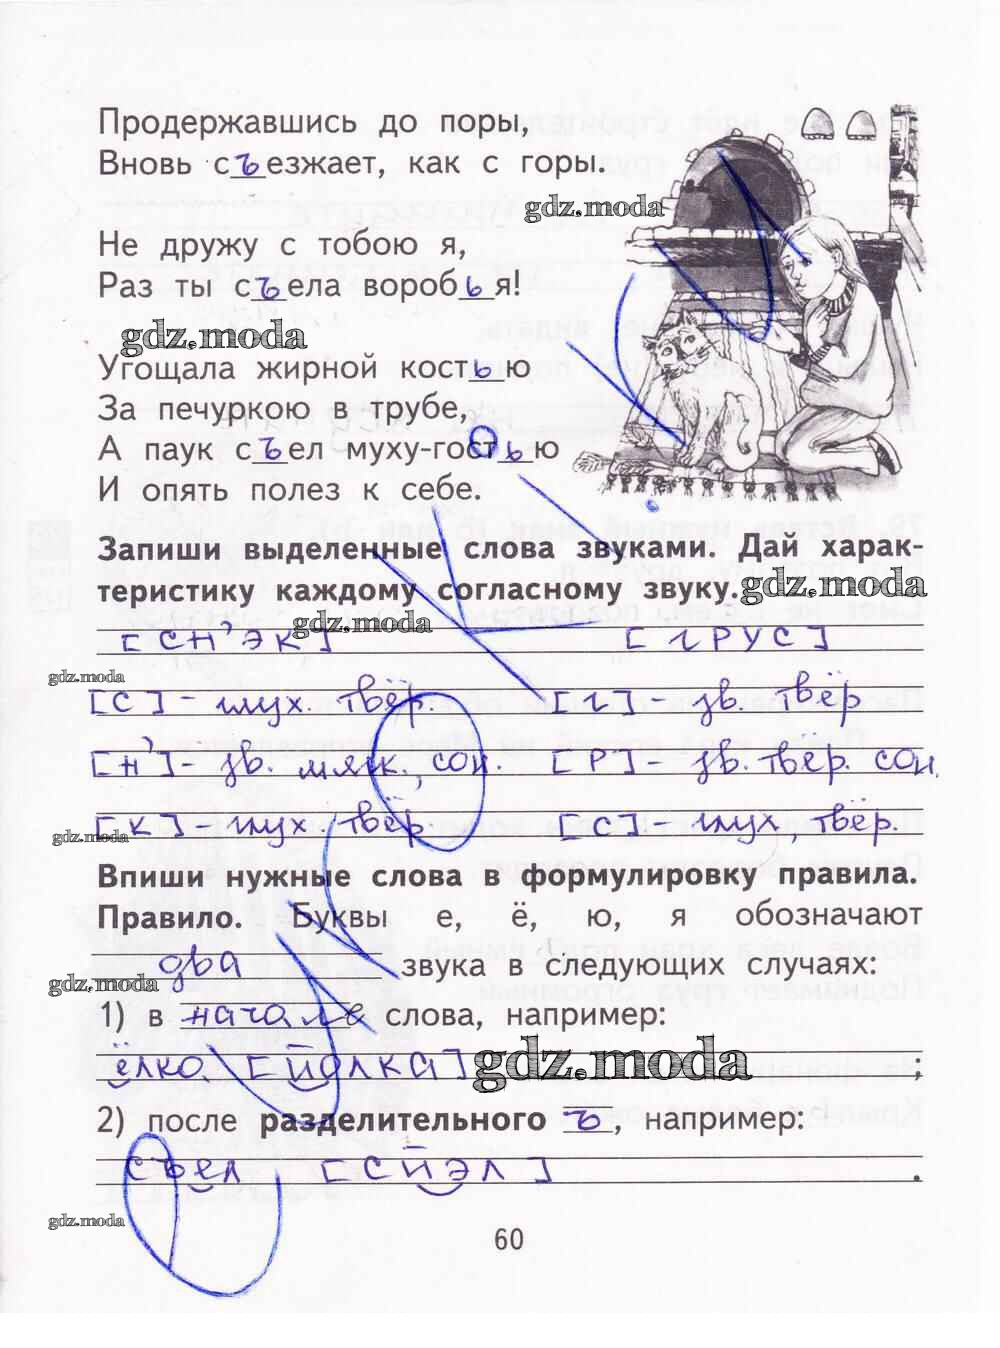 Продержавшись до поры,
Вновь съезжает, как с горы.
gdz.moda
Не дружу с тобою я,
Раз ты съела воробья!
gdz.moda
Угощала жирной костью
За печуркою в трубе,
А паук съел муху-гостью
И опять полез к себе.
Запиши выделенные слова звуками. Дай харак-
теристику каждому согласному звуку. gdz.moda
gdz.moda
[СН'ЭК] [ГРУС]
gdz.moda
[С] - глух. твёр. [Г] - зв. твёр
[Н'] - зв. мягк., сон. [Р] - зв. твёр. сон.
gdz.moda
[К] - глух. твёр [С] - глух, твёр.
Впиши нужные слова в формулировку правила.
Правило. Буквы е, ё, ю, я обозначают
два звука в следующих случаях:
gdz.moda
1) в начале слова, например:
ёлка [йолка] gdz.moda ;
2) после разделительного ъ, например:
съел [сйэл] .
gdz.moda
60